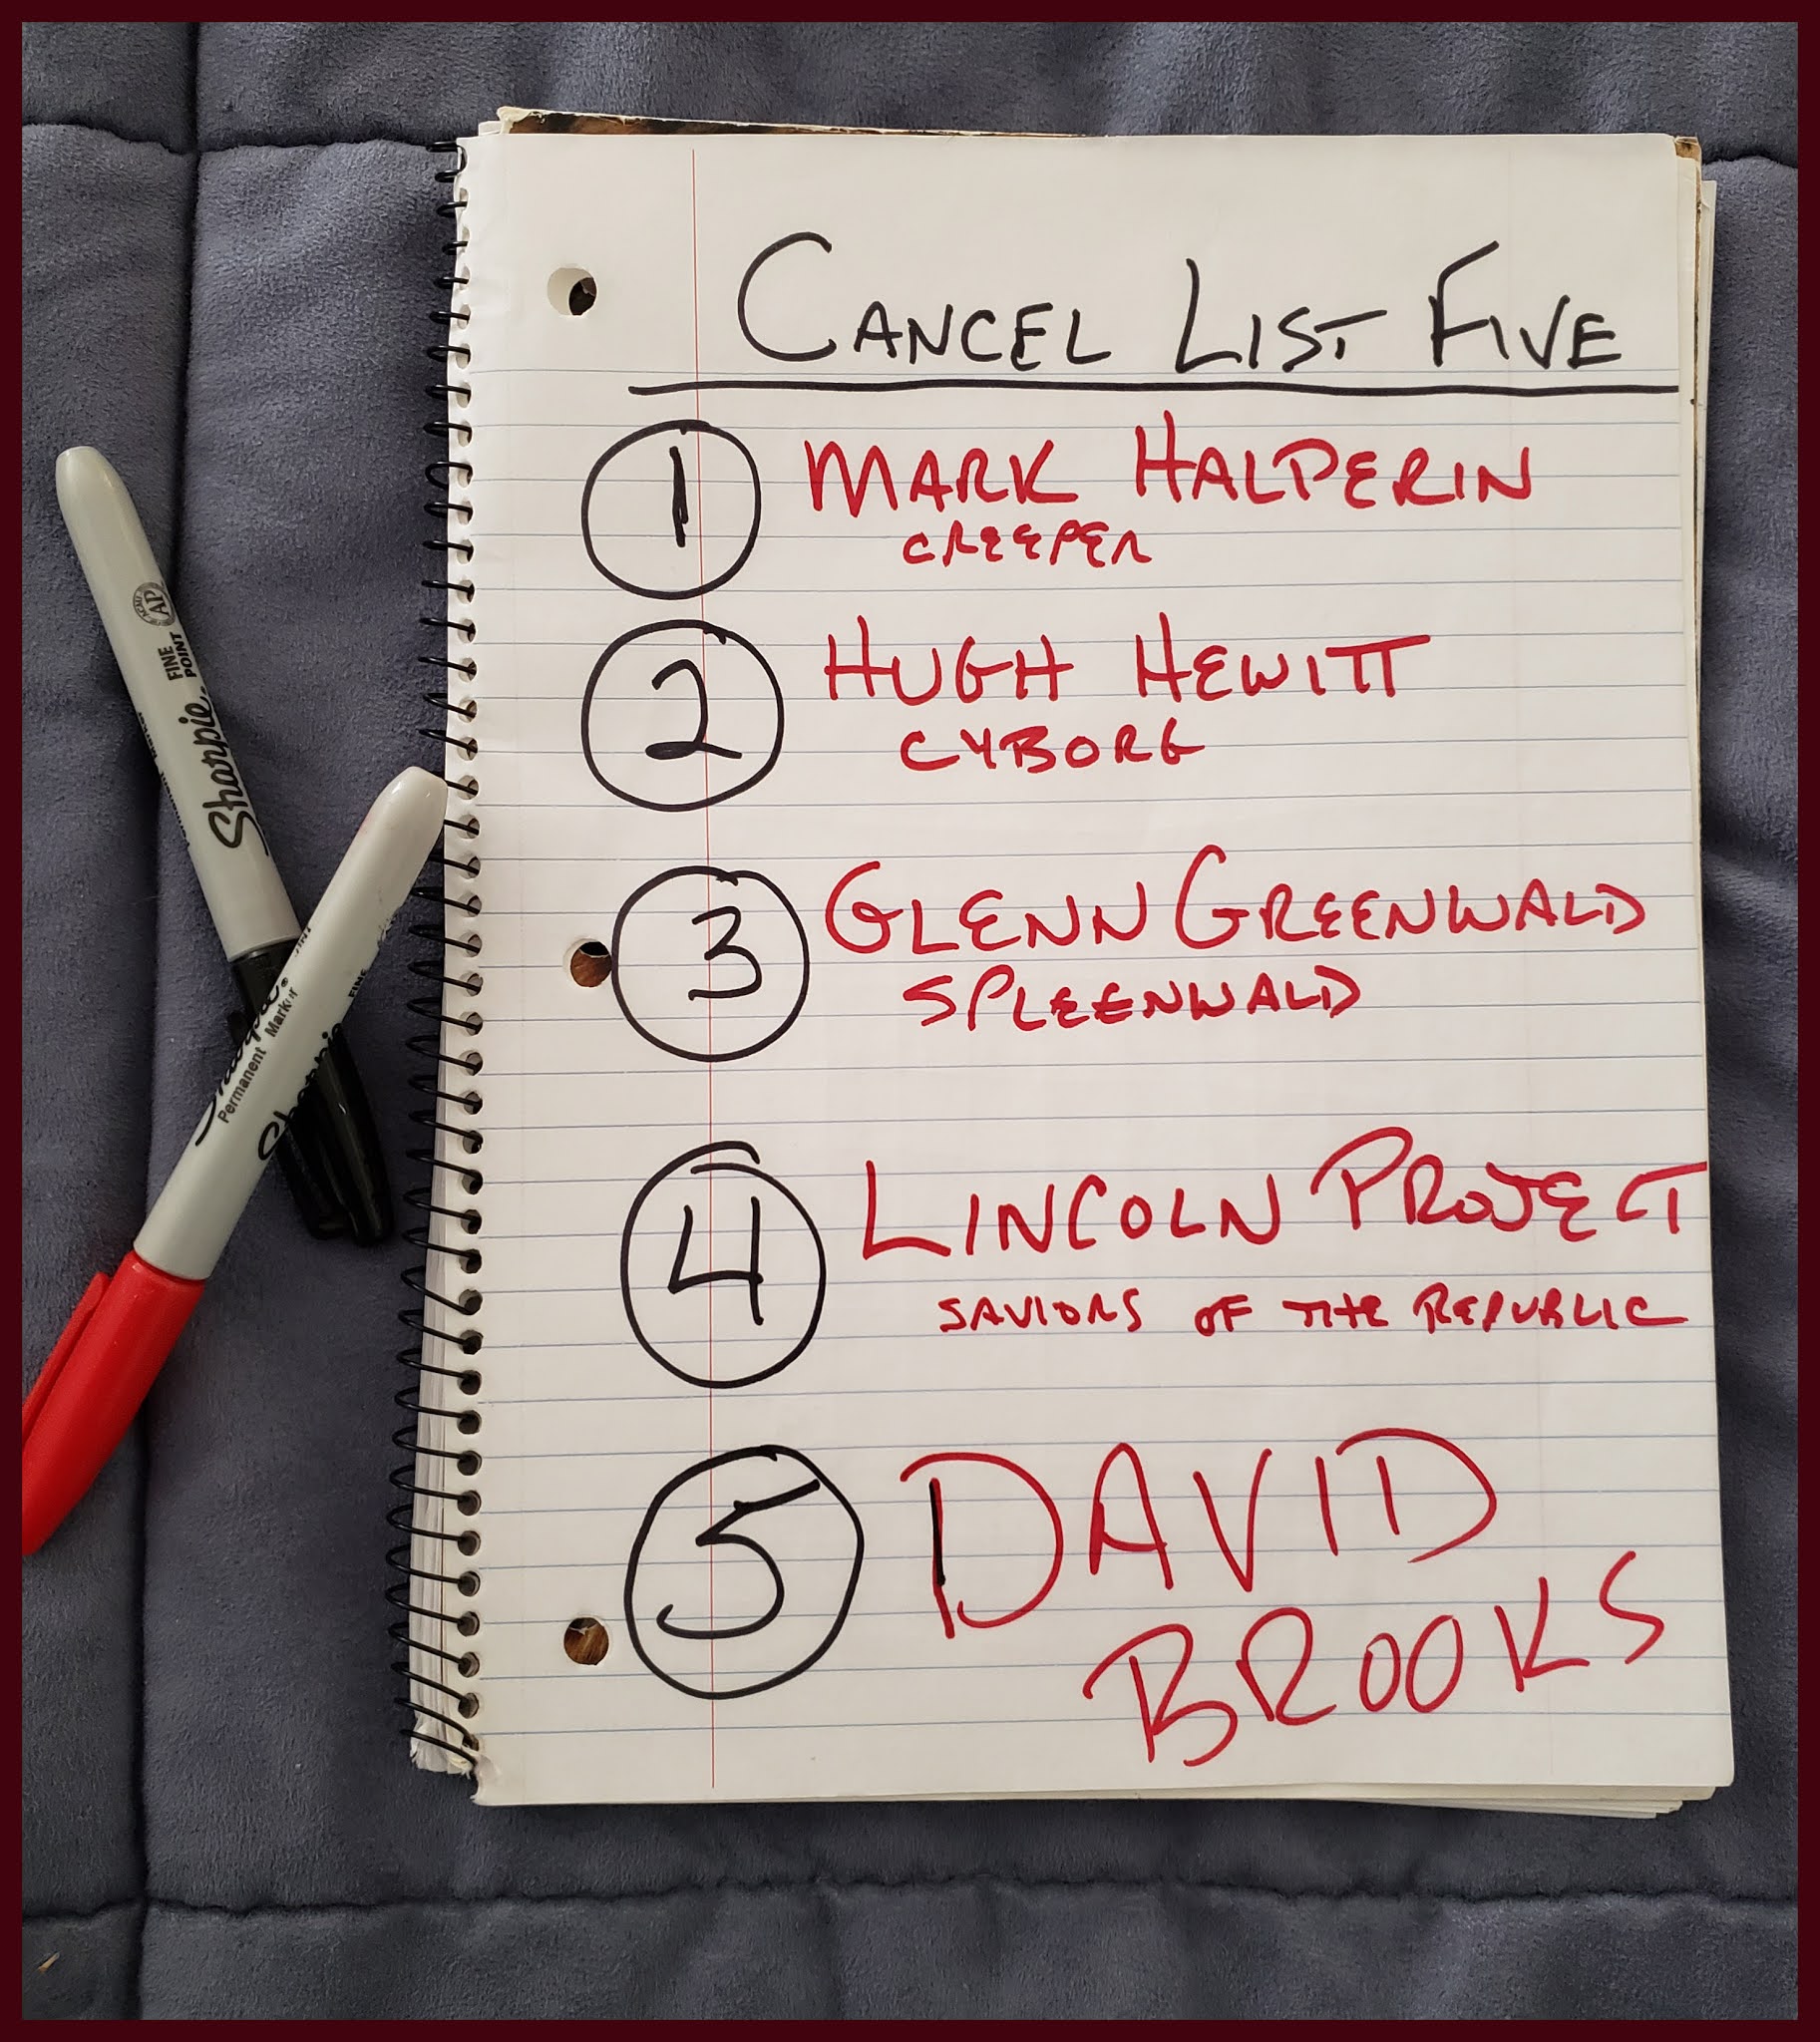 CANCEL LIST FIVE
1 MARK HALPERIN
CREEPER
2 HUGH HEWITT
CYBORG
3 GLENN GREENWALD
SPLEENWALD
4 LINCOLN PROJECT
SAVIORS OF THE REPUBLIC
5 DAVID
BROOKS
AP
FINE
POINT
Sharpie
Permanent Marker
Sharpie